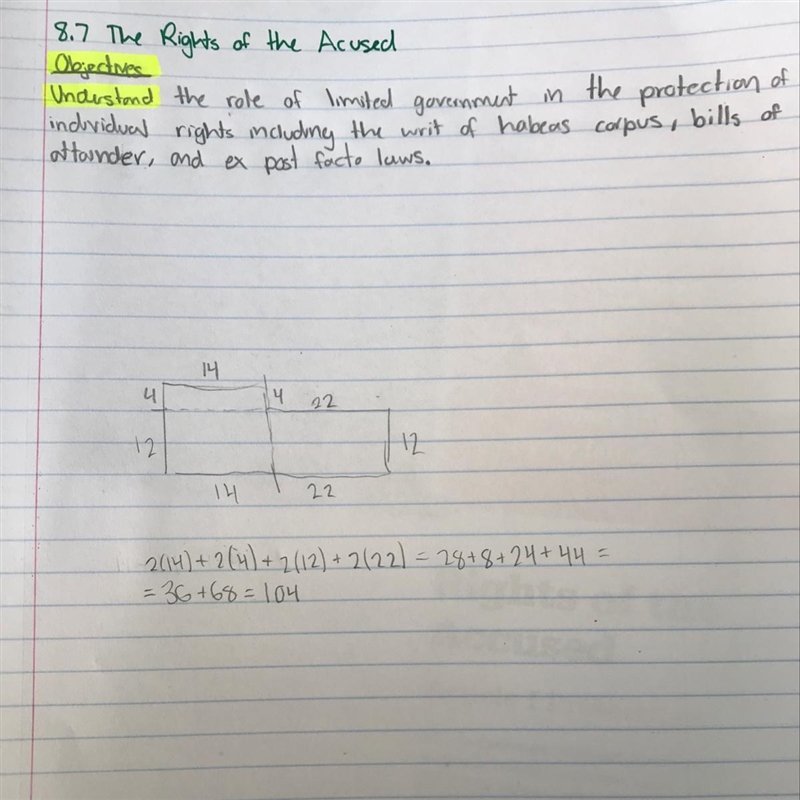 8.7 The Rights of the Acused
Objectives
Understand the role of limited government in the protection of
individual rights including the writ of habeas corpus, bills of
attainder, and ex post facto laws.
14
4 4 22
12 12
14 22
2(14) + 2(4) + 2(12) + 2(22) = 28 + 8 + 24 + 44 =
= 36 + 68 = 104